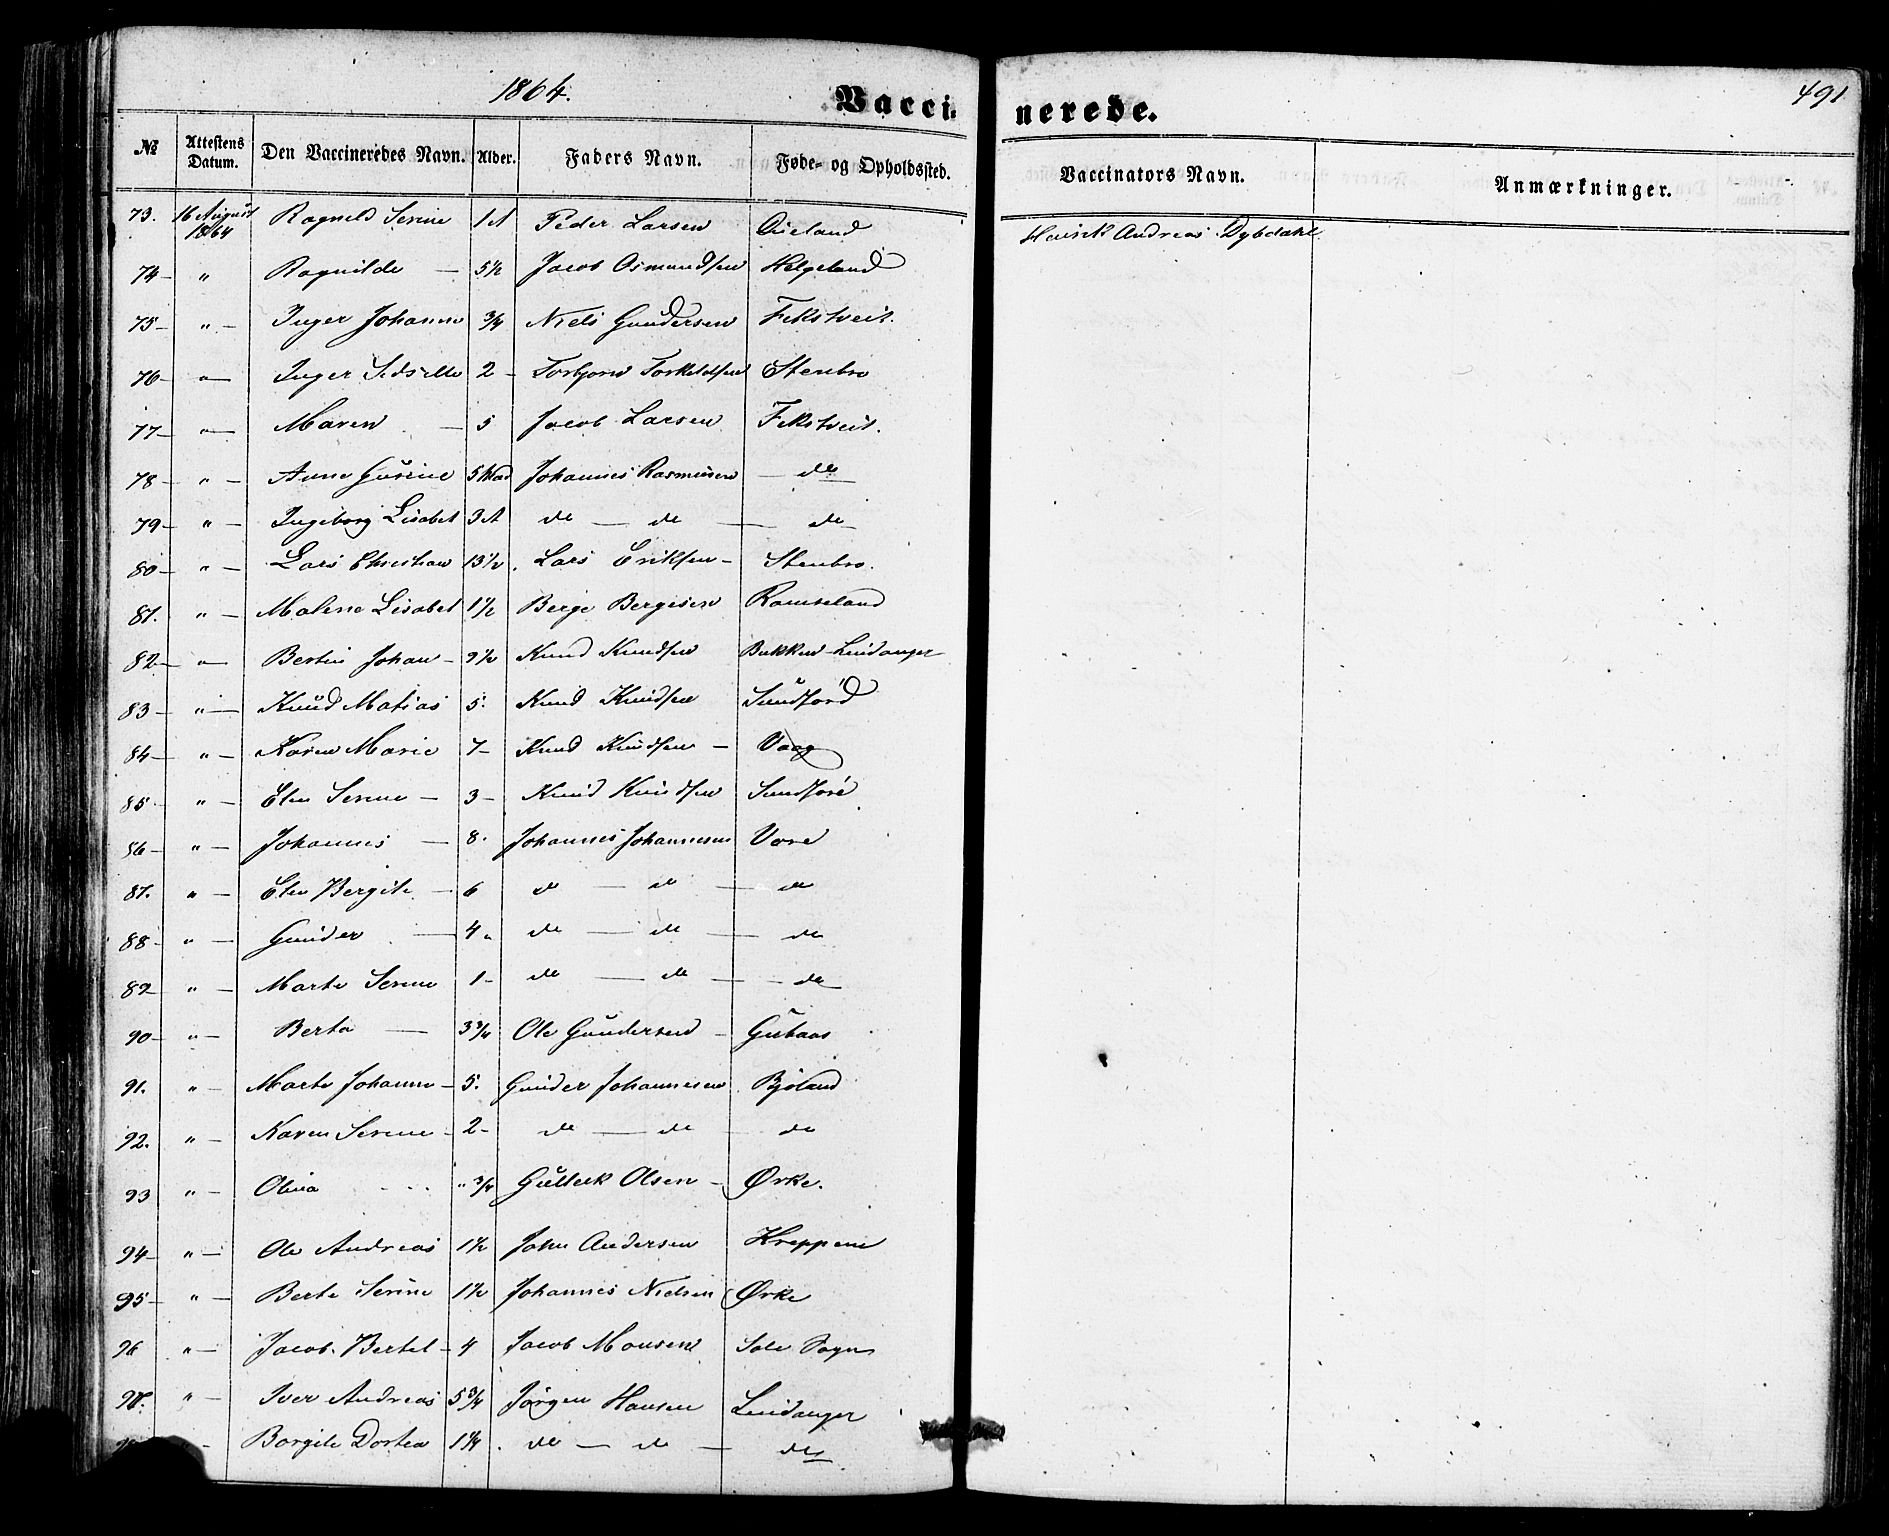 1864.
Vaccinerede.
491
№ | Attestens Datum. | Den Vaccineredes Navn. | Alder. | Faders Navn. | Føde- og Opholdssted. | Vaccinators Navn. | Anmærkninger.
73. | 16 August 1864 | Ragneld Serine | 1 A | Peder Larsen | Øieland | Henrik Andreas Dybdahl
74 – | " | Ragnilde – | 5½ | Jacob Osmundsen | Helgeland
75 – | " – | Inger Johanne | ¾ | Niels Gundersen | Fikstveit.
76 – | " – | Inger Sidselle | 2 – | Torbjorn Torkeldsen | Stenbro
77 – | " – | Maren – | 5 | Jacob Larsen | Fikstveit.
78 – | " – | Anne Gurine | 5 Mad | Johannes Rasmusen | – do
79 – | " – | Ingeborg Lisabet | 3 A | do – do – | do
80 – | " – | Lars Christian | 13½ | Lars Eriksen – | Stenbro.
81. | " – | Malene Lisabet | 1½ | Berge Bergesen | Ramseland
82 – | " – | Bertin Johan – | 9½ | Knud Knudsen | Bakken Lindanger
83 – | " – | Knud Matias | 5. | Knud Knudsen | Sundförd
84 – | " – | Karen Marie | 7 – | Knud Knudsen – | Vaag
85 – | " – | Elen Serine – | 3 – | Knud Knudsen | Sundföre
86 – | " – | Johannes – | 8. | Johannes Johannesen | Vore
87. | " – | Elen Bergite – | 6 | do – do – | do
88 – | " – | Gunder – | 4 " | do – do – | do
89 – | " – | Marte Serine | 1 – | do – do – | do
90 – | " – | Berta – | 3¾ | Ole Gundersen – | Gubaas
91. | " – | Marte Johanne – | 5. | Gunder Johannesen | Bjoland
92. | " – | Karen Serine – | 2 – | do – do | do
93 | " – | Olina | " ¾ | Gulleik Olsen – | Ørke.
94 – | " – | Ole Andreas | 1½ | John Andersen | Kreppene
95 – | " – | Berte Serine | 1½ | Johannes Nielsen | Ørke
96 | " – | Jacob Bertel – | 4 | Jacob Monsen | Sole Sogn
97. | " – | Iver Andreas | 5¾ | Jörgen Hansen | Lindanger
– | Borgite Dortea | 1¼ | do – do – | do